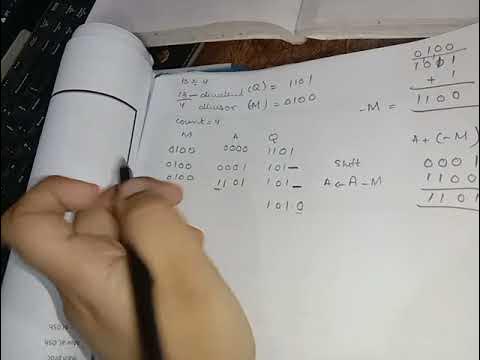 13 ÷ 4
13 → dividend (Q) = 1101
4 divisor (M) = 0100
count = 4
M A Q
0100 0000 1101
0100 0001 101_ Shift
0100 1101 101_ A ← A - M
1010
0100
1 0
+ 1
-M = 1100
A + (-M)
0001
1100
1101